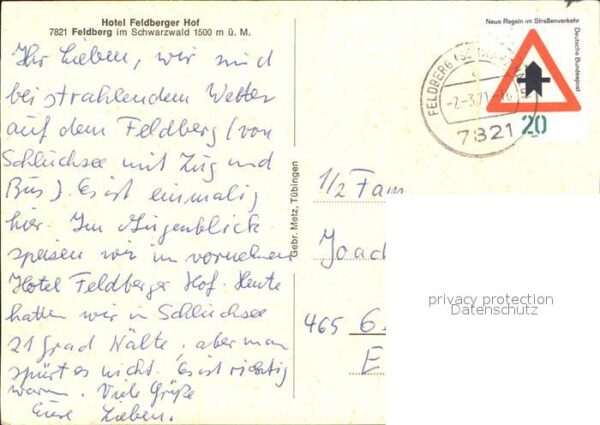 Hotel Feldberger Hof
7821 Feldberg im Schwarzwald 1500 m ü. M.
Ihr Lieben, wir sind
bei strahlendem Wetter
auf dem Feldberg (von
Schluchsee mit Zug und
Bus). Es ist einmalig
hier. Im Augenblick
speisen wir im vornehmen
Hotel Feldberger Hof. Heute
hatten wir in Schluchsee
21 Grad Kälte, aber man
spürt es nicht. Es ist richtig
warm. Viele Grüße
Eure Lieben.
Gebr. Metz, Tübingen
Neue Regeln im Straßenverkehr
Deutsche Bundespost
20
FELDBERG (SCHWARZW
-2.-3.71
7821
1/2 Fam
Joach
465 6
E
privacy protection
Datenschutz